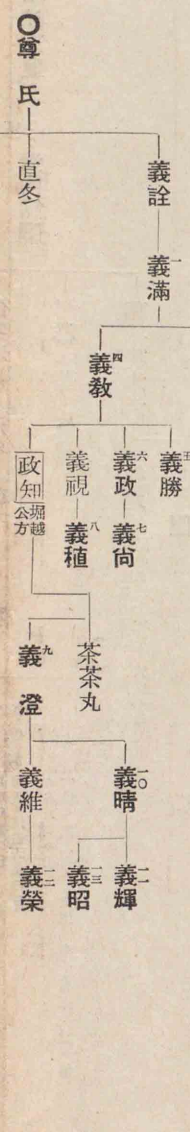 〇尊氏
義詮
直冬
一義滿
四義敎
五義勝
六義政
七義尙
義視
八義稙
政知
堀越
公方
茶茶丸
九義澄
一〇義晴
義維
一一義輝
一三義昭
一二義榮